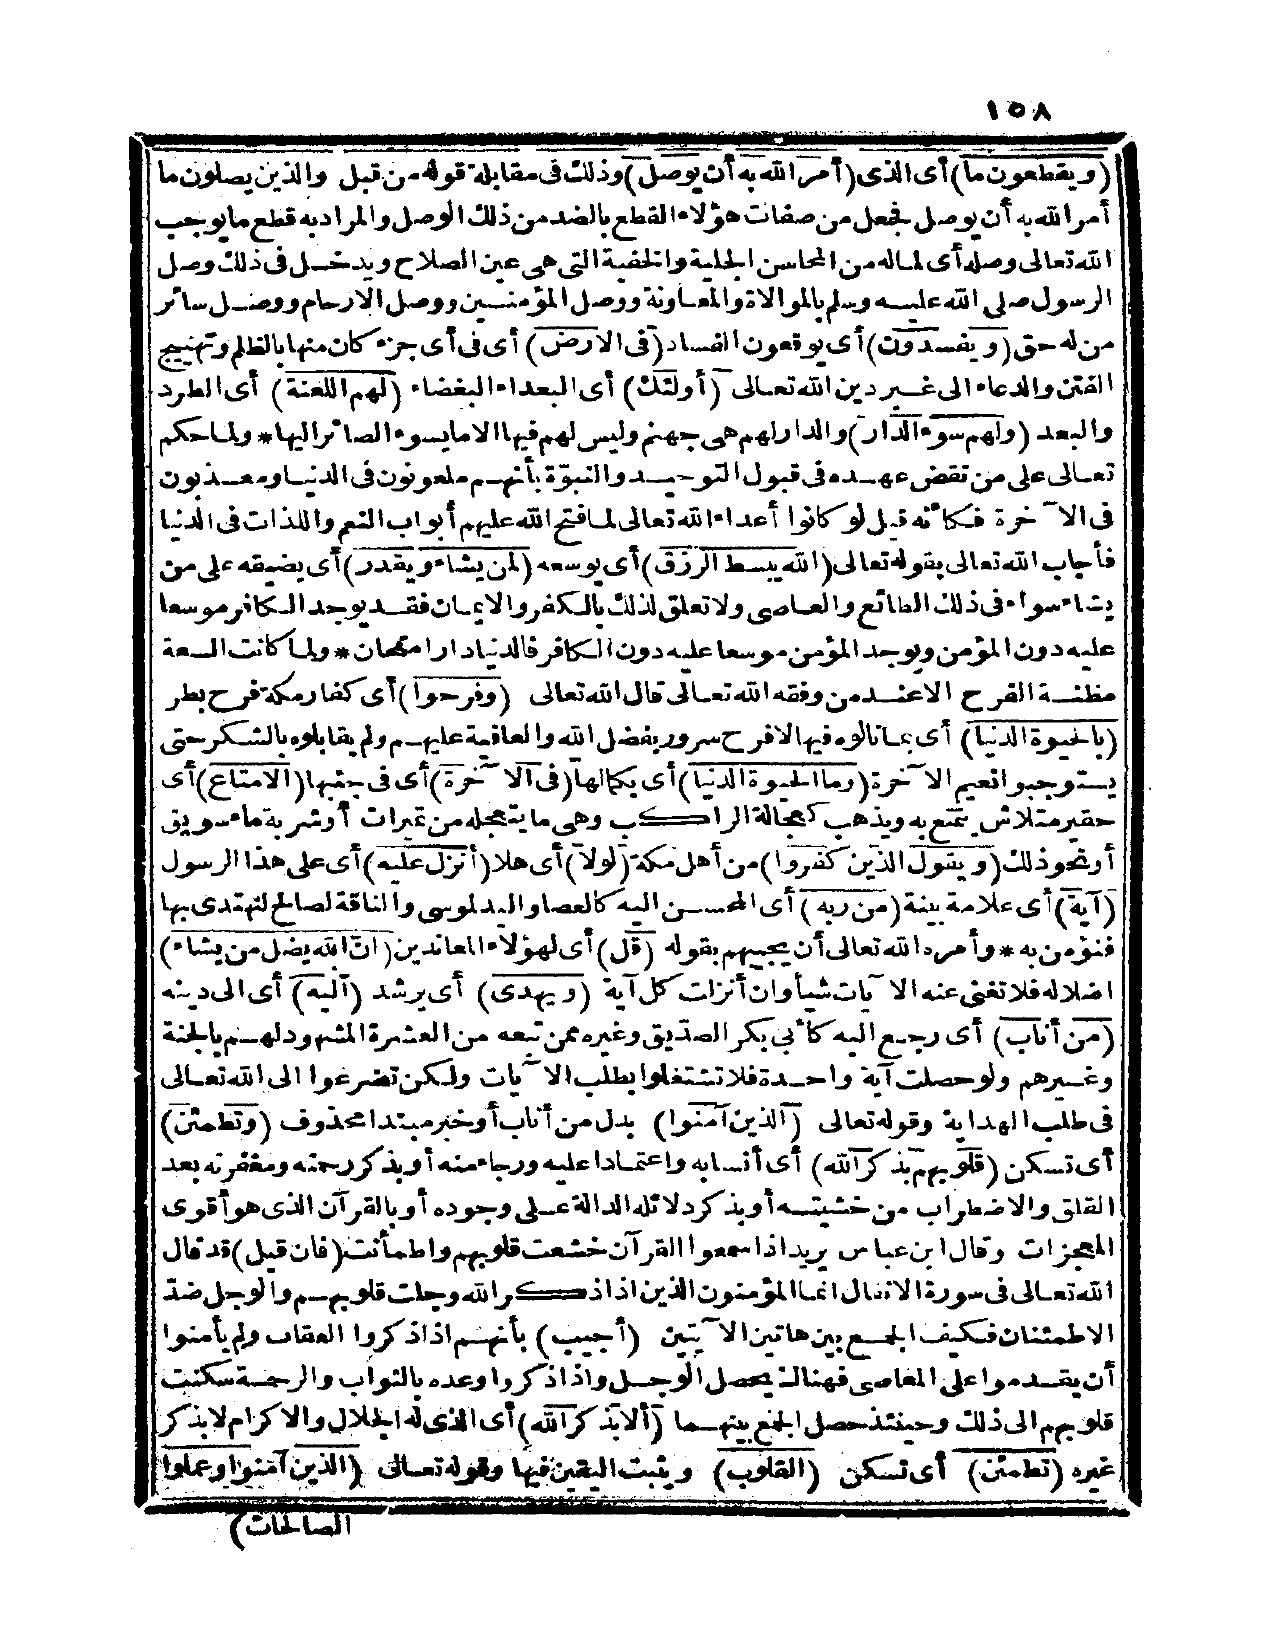 ١٥٨
(ويقطعون ما) أى الذى (أمر الله به أن يوصل) وذلك فى مقابلة قوله من قبل والذين يصلون ما
أمر الله به أن يوصل فجعل من صفات هؤلاء القطع بالضد من ذلك الوصل والمراد به قطع ما يوجب
الله تعالى وصله أى لما له من المحاسن الجلية والخفية التى هى عين الصلاح ويدخل فى ذلك وصل
الرسول صلى الله عليه وسلم بالموالاة والمعاونة ووصل المؤمنين ووصل الارحام ووصل سائر
من له حق (ويفسدون) أى يوقعون الفساد (فى الارض) أى فى أى جزء كان منها بالظلم وتهييج
الفتن والدعاء الى غير دين الله تعالى (أولئك) أى البعداء البغضاء (لهم اللعنة) أى الطرد
والبعد (ولهم سوء الدار) والدار لهم هى جهنم وليس لهم فيها الا ما يسوء الصائر اليها * ولما حكم
تعالى على من نقض عهده فى قبول التوحيد والنبوّة بأنهم ملعونون فى الدنيا ومعذبون
فى الآخرة فكأنه قيل لو كانوا أعداء الله تعالى لما فتح الله عليهم أبواب النعم واللذات فى الدنيا
فأجاب الله تعالى بقوله تعالى (الله يبسط الرزق) أى يوسعه (لمن يشاء ويقدر) أى يضيقه على من
يشاء سواء فى ذلك الطائع والعاصى ولا تعلق لذلك بالكفر والايمان فقد يوجد الكافر موسعا
عليه دون المؤمن ويوجد المؤمن موسعا عليه دون الكافر فالدنيا دار امتحان * ولما كانت السعة
مظنة الفرح الا عند من وفقه الله تعالى قال الله تعالى (وفرحوا) أى كفار مكة فرح بطر
(بالحيوة الدنيا) أى بما نالوه فيها لا فرح سرور بفضل الله والعافية عليهم ولم يقابلوه بالشكر حتى
يستوجبوا نعيم الآخرة (وما الحيوة الدنيا) أى بكمالها (فى الآخرة) أى فى جنبها (الا متاع) أى
حقير متلاش يتمتع به ويذهب كعجالة الراكب وهى ما يتعجله من تميرات أو شربة ماء سويق
أو نحو ذلك (ويقول الذين كفروا) من أهل مكة (لولا) أى هلا (أنزل عليه) أى على هذا الرسول
(آية) أى علامة بينة (من ربه) أى المحسن اليه كالعصا واليد لموسى والناقة لصالح لنهتدى بها
فنؤمن به * وأمره الله تعالى أن يجيبهم بقوله (قل) أى لهؤلاء المعاندين (انّ الله يضل من يشاء)
اضلاله فلا تغنى عنه الآيات شيأ وان أنزلت كل آية (ويهدى) أى يرشد (اليه) أى الى دينه
(من أناب) أى رجع اليه كأبى بكر الصدّيق وغيره ممن تبعه من العشرة المشهود لهم بالجنة
وغيرهم ولو حصلت آية واحدة فلا تشتغلوا بطلب الآيات ولكن تضرعوا الى الله تعالى
فى طلب الهداية وقوله تعالى (الذين آمنوا) بدل من أناب أو خبر مبتدا محذوف (وتطمئنّ)
أى تسكن (قلوبهم بذكر الله) أى أنسا به واعتمادا عليه ورجاء منه أو بذكر رحمته ومغفرته بعد
القلق والاضطراب من خشيته أو بذكر دلائله الدالة على وجوده أو بالقرآن الذى هو أقوى
المعجزات وقال ابن عباس يريد اذا سمعوا القرآن خشعت قلوبهم واطمأنت (فان قيل) قد قال
الله تعالى فى سورة الانفال انما المؤمنون الذين اذا ذكر الله وجلت قلوبهم والوجل ضدّ
الاطمئنان فكيف الجمع بين هاتين الآيتين (أجيب) بأنهم اذا ذكروا العقاب ولم يأمنوا
أن يقدموا على المعاصى فهنالك يحصل الوجل واذا ذكروا وعده بالثواب والرحمة سكنت
قلوبهم الى ذلك وحينئذ حصل الجمع بينهما (ألا بذكر الله) أى الذى له الجلال والاكرام لا بذكر
غيره (تطمئنّ) أى تسكن (القلوب) ويثبت اليقين فيها وقوله تعالى (الذين آمنوا وعملوا
الصالحات)